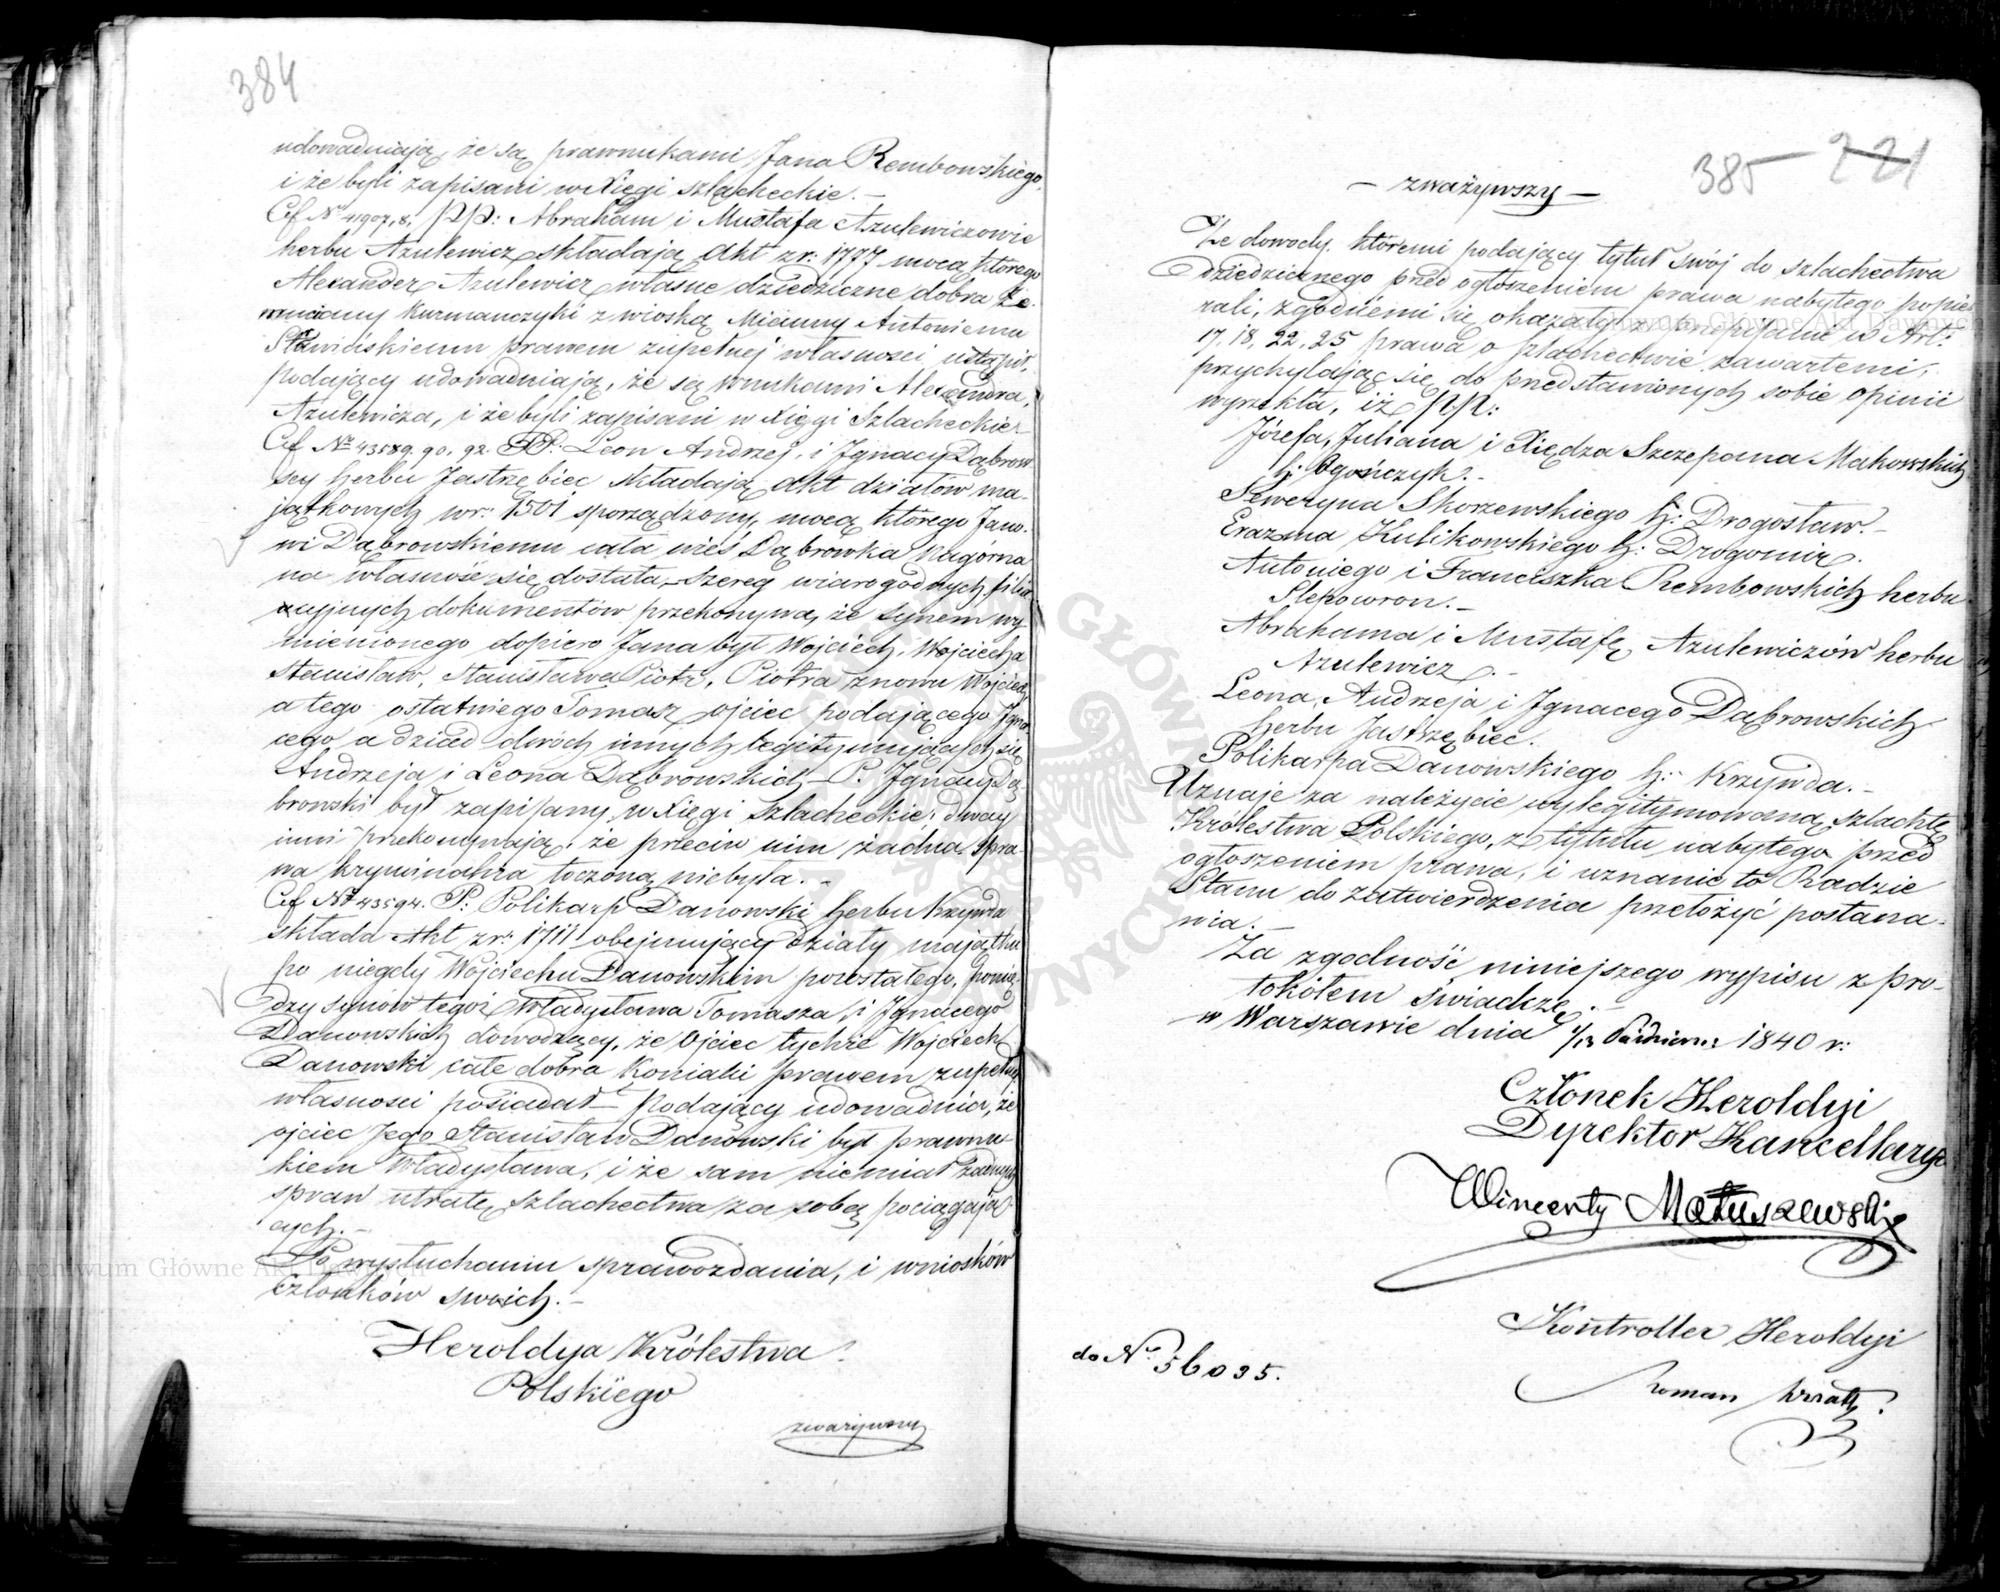 384
udowadniają, że są prawnukami Jana Rembowskiego,
i że byli zapisani w Xięgi szlacheckie. –
Cef Nr 41907,8, PP: Abraham i Mustafa Azulewiczowie
herbu Azulewicz składają Akt z r: 1777 mocą którego
Alexander Azulewicz własne dziedziczne dobra
Kurmanczyki z wioską Mieuny Antoniemu
prawem zupełnej własności ustąpił.
podający udowadniają, że są wnukami Alexandra
Azulewicza, i że byli zapisani w Xięgi Szlacheckie –
Cef Nr 43589, 90, 92. PP: Leon Andrzej, i Ignacy Dąbrow-
scy herbu Jastrzębiec składają Akt działów ma-
jątkowych w r: sporządzony, mocą którego Jano-
wi Dąbrowskiemu cała wieś Dąbrowka Nagórna
na własność się dostała – Szereg wiarogodnych filia
cyjnych dokumentów przekonywa, że synem wy-
mienionego dopiero Jana był Wojciech, Wojciecha
Stanisław, Stanisława Piotr, Piotra znowu Wojciech
a tego ostatniego Tomasz ojciec podającego Igna-
cego a dziad dwóch innych legitymujących się
Andrzeja i Leona Dąbrowskich – P. Ignacy Dą-
browski był zapisany w Xięgi Szlacheckie; dwaj
inni przekonywają, że przeciw nim żadna spra-
wa kryminalna toczoną niebyła. –
Cef Nr 43594. P: Polikarp Danowski herbu Krzywda
składa Akt z r: 1711 obejmujący działy majątku
po niegdy Wojciechu Danowskim pozostałego, pomię-
dzy synów tegoż Władysława Tomasza, i Ignacego
Danowskich dowodzący, że Ojciec tychże Wojciech
Danowski całe dobra Koniaki prawem zupełnej
własności posiadał – Podający udowadnia, że
ojciec Jego Stanisław Danowski był prawnu-
kiem Władysława, i że sam niemiał żadnych
spraw utratę szlachectwa za sobą pociągają-
cych. –
Po wysłuchaniu sprawozdania, i wniosków
członków swoich. –
Heroldya Królestwa
Polskiego
zważywszy
385 221
– zważywszy –
Że dowody, któremi podający tytuł swój do szlachectwa
dziedzicznego przed ogłoszeniem prawa nabytego popie-
rali, zgodnemi się okazały z przepisami w Art:
17, 18, 22, 25 prawa o szlachectwie zawartemi;
przychylając się do przedstawionych sobie opinii
wyrzekła, iż PP:
Józefa, Juliana i Xiędza Szczepana Makowskich
h: Ogończyk. –
Seweryna Skorzewskiego h: Drogosław. –
Erazma Kulikowskiego h: Drogomir.
Antoniego i Franciszka Rembowskich herbu
Ślepowron. –
Abrahama i Mustafę Azulewiczów herbu
Azulewicz. –
Leona, Andrzeja i Ignacego Dąbrowskich
herbu Jastrzębiec.
Polikarpa Danowskiego h: Krzywda. –
Uznaje za należycie wylegitymowaną szlachtę
Królestwa Polskiego, z tytułu nabytego przed
ogłoszeniem prawa, i uznanie to Radzie
Stanu do zatwierdzenia przełożyć postana-
wia. –
Za zgodność niniejszego wypisu z pro-
tokółem świadczę. –
w Warszawie dnia 1/13 Październi: 1840 r:
Członek Heroldyi
Dyrektor Kancellaryi
Wincenty Matuszewski
Kontroller Heroldyi
Roman
do Nr 56035.
Archiwum Główne Akt Dawnych
Archiwum Główne Akt Dawnych